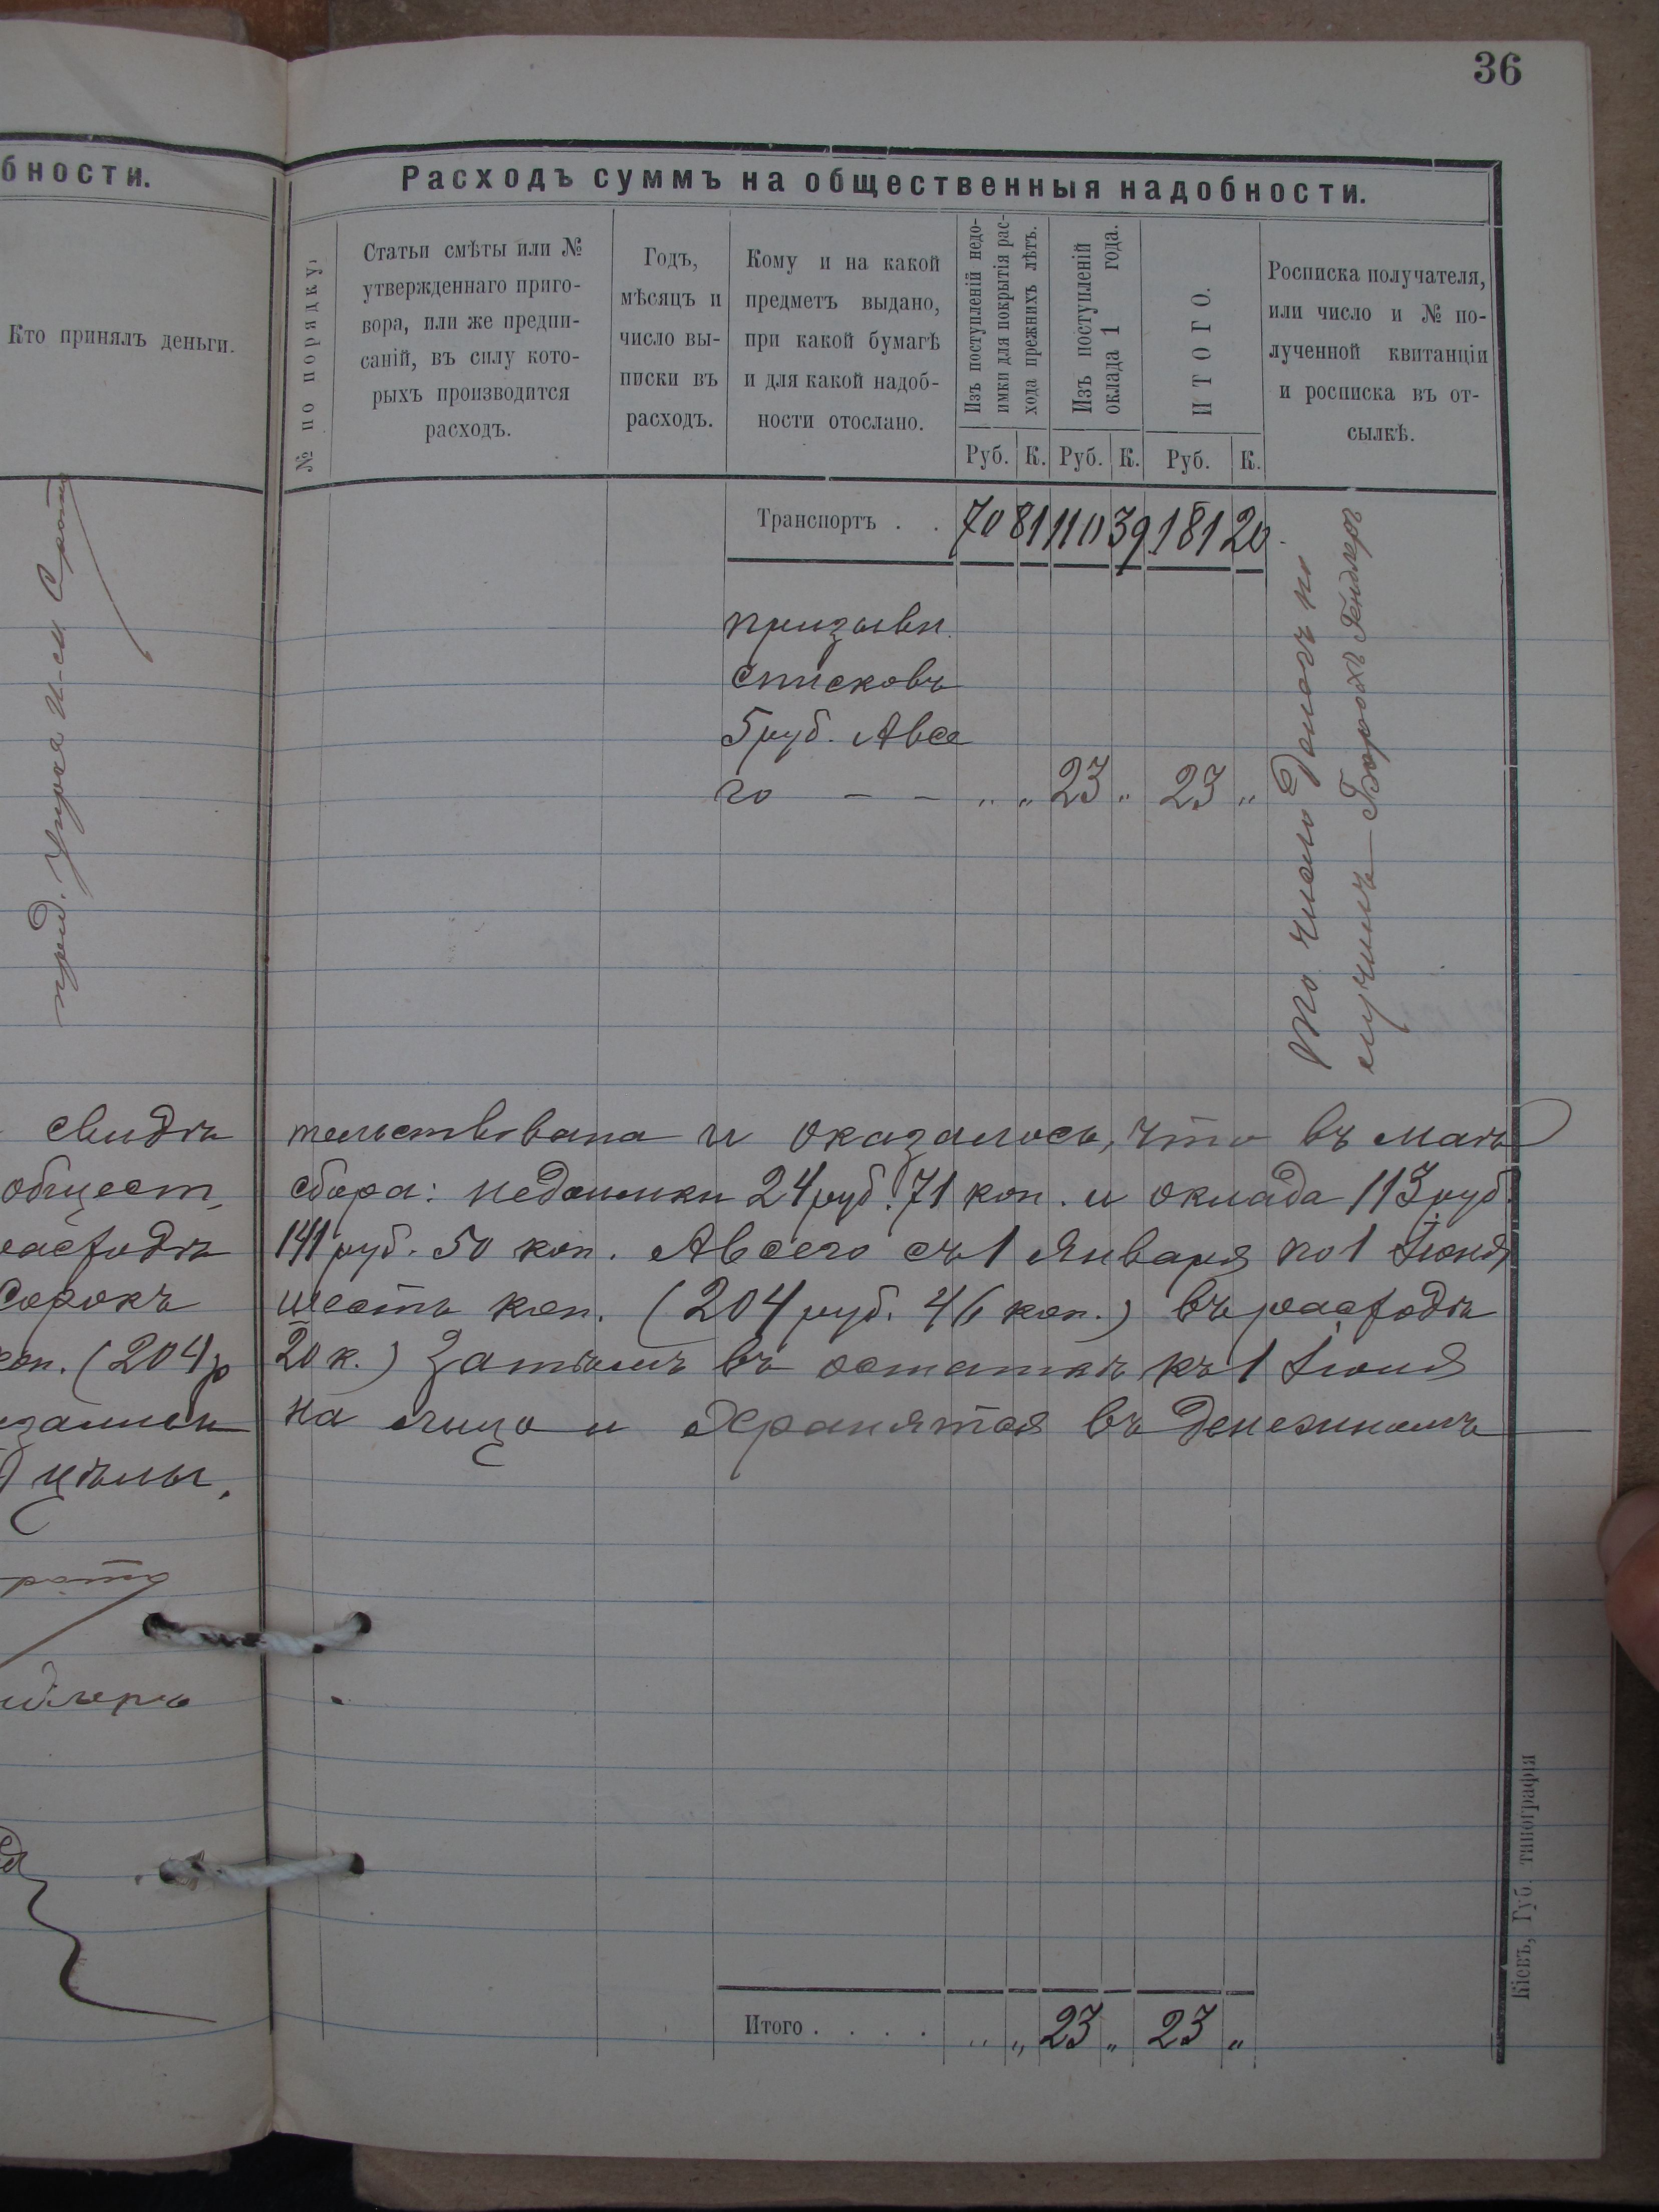 36
бности.
Кто принялъ деньги.
свидѣ
общест,
расходѣ
сорокъ
коп. (204 р
цѣлы.
Расходъ суммъ на общественныя надобности.
№ по порядку.
Статьи смѣты или №
утвержденнаго приго-
вора, или же предпи-
саній, въ силу кото-
рыхъ производится
расходъ.
Годъ,
мѣсяцъ и
число вы-
писки въ
расходъ.
Кому и на какой
предметъ выдано,
при какой бумагѣ
и для какой надоб-
ности отослано.
Изъ поступленій недо-
имки для покрытія рас-
хода прежнихъ лѣтъ.
Изъ поступленій
оклада 1 года.
ИТОГО.
Росписка получателя,
или число и № по-
лученной квитанціи
и росписка въ от-
сылкѣ.
Руб. К. Руб. К. Руб. К.
Транспортъ . . 70 81 110 39 181 20
призывн.
списковъ
5 руб. Авсе
го — — „ „ 23 „ 23 „
лучилъ Борохъ Гендлеръ
тельствована и оказалось, что въ маѣ
сбора: недоимки 24 руб. 71 коп. и оклада 113 руб.
141 руб. 50 коп. Авсего съ 1 Января по 1 Іюня
шесть коп. (204 руб. 46 коп.) въ расходѣ
20 к.) Затѣмъ въ остаткѣ къ 1 Іюня
на лицо и хранятся въ денежномъ
Итого . . . . „ „ 23 „ 23 „
Кіевъ, Губ. типографія